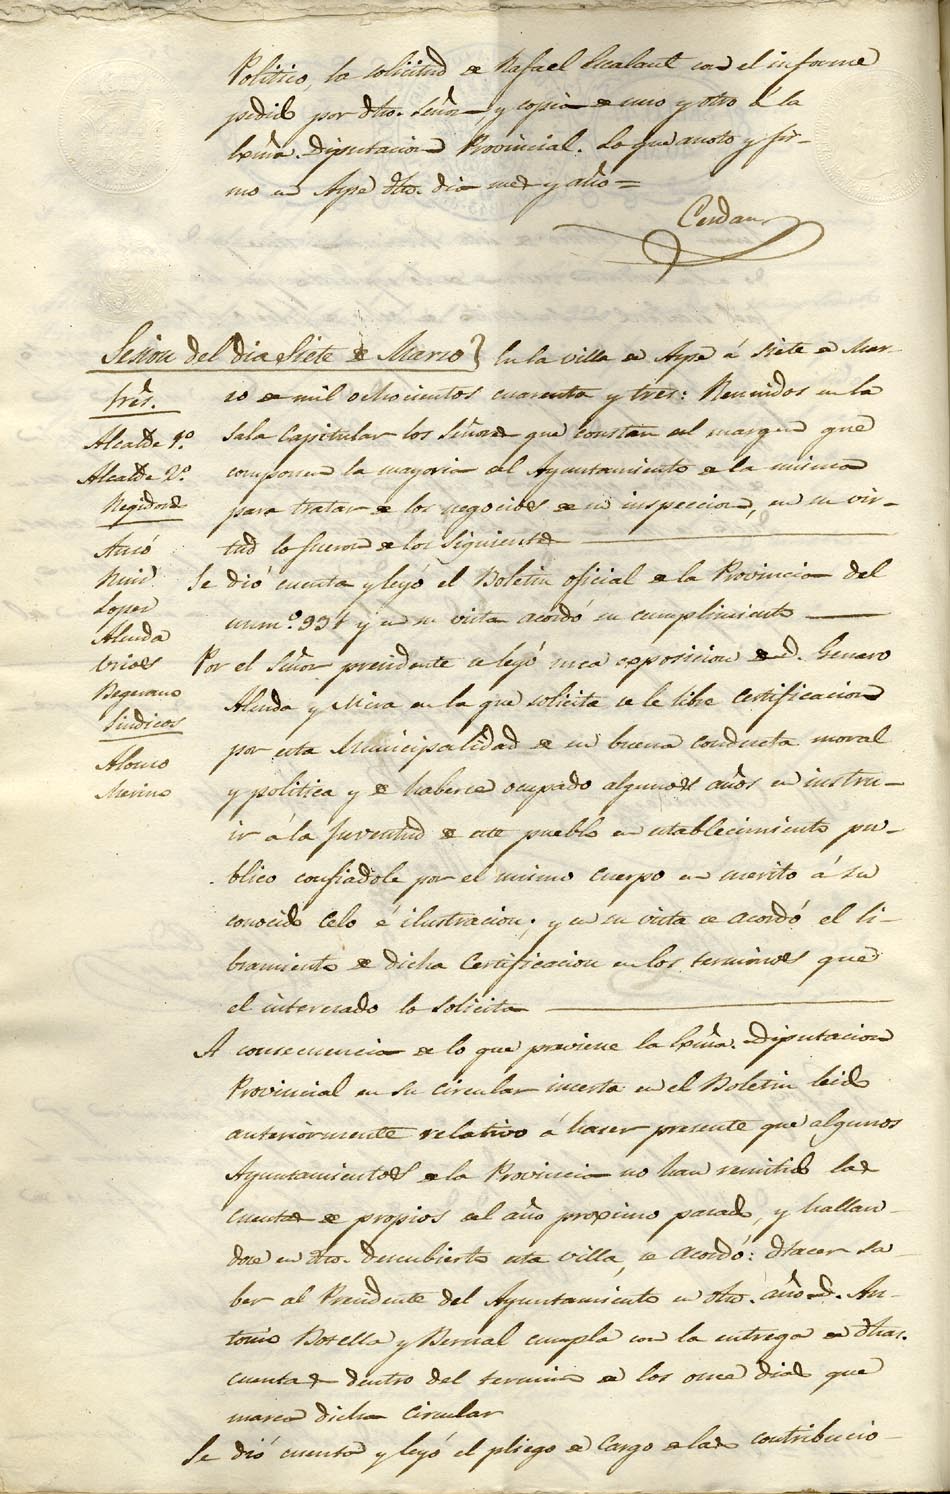 Politico, la solicitud de Rafael Escalant con el informe
pedido por dho. Señor, y copia de uno y otro á la
Exma. Diputacion Provincial. Lo que anoto y fir-
mo en Aspe dho. dia mes y año=
Cerdan
Sesion del dia Siete de Marzo} En la villa de Aspe á siete de Mar-
Sres.
zo de mil ochocientos cuarenta y tres: Reunidos en la
Alcalde 1.º
Sala Capitular los Señores que constan al margen que
Alcalde 2.º
componen la mayoria del Ayuntamiento de la misma
Regidores
para tratar de los negocios de su inspeccion, en su vir-
tud lo fueron de los siguientes
Ruiz
Se dió cuenta y leyó el Boletin oficial de la Provincia del
Lopez
num.º y en su vista acordó su cumplimiento
Almda
Por el Señor presidente se leyó una exposicion de D. Genaro
Almda y Mira en la que solicita se le libre Certificacion
Sindicos
por esta Municipalidad de su buena conducta moral
Alonso
y politica y de haberse ocupado algunos años en instru-
Merino
ir á la Juventud de este pueblo en establecimiento pu-
blico confiadole por el mismo Cuerpo en merito á su
conocido Celo é ilustracion; y en su vista se acordó el li-
bramiento de dicha Certificacion en los terminos que
el interesado lo solicita
A consecuencia de lo que previene la Exma. Diputacion
Provincial en su circular inserta en el Boletin leido
anteriormente relativo á haser presente que algunos
Ayuntamientos de la Provincia no han remitido las
Cuentas de propios del año proximo pasado, y hallan-
dose en dho. descubierto esta villa, se acordó: Hacer sa-
ber al Presidente del Ayuntamiento en dho. año D. An-
tonio Botella y Bernal cumpla con la entrega de dhas.
cuentas dentro del termino de los once dias que
marca dicha Circular
Se dió cuenta y leyó el pliego de Cargo de las contribucio-